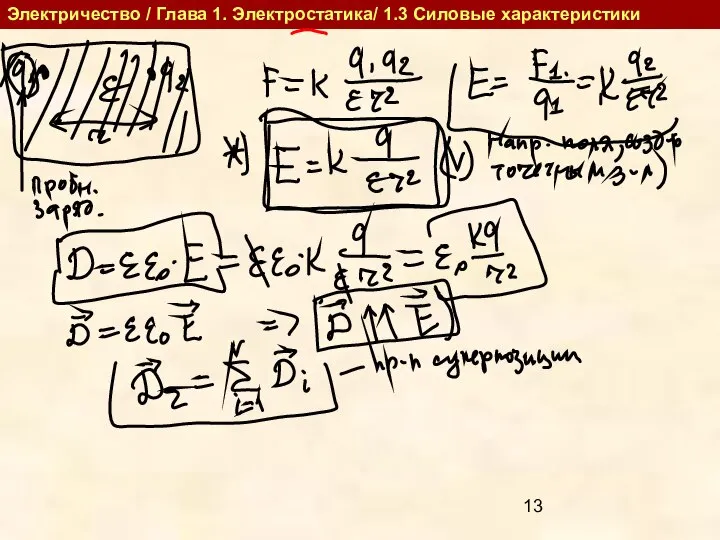 Электричество / Глава 1. Электростатика/ 1.3 Силовые характеристики
q₁ ε q₂
r
Пробн.
заряд.
F = k q₁q₂ / εr²
E = F₁ / q₁ = k q₂ / εr²
*) E = k q / εr² (V) Напр. поля, созд
точечным з-м)
D = εε₀·E = εε₀·k q / εr² = ε₀ kq / r²
D⃗ = εε₀E⃗ => D⃗ ↑↑ E⃗
D⃗ = N Σ i=1 D⃗i — пр-п суперпозиции
13